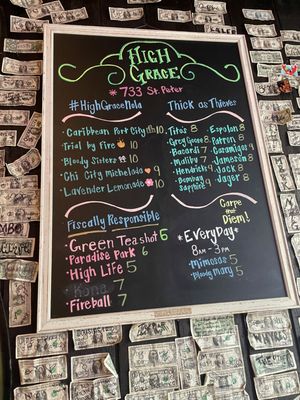 High Grace
733 St. Peter
#HighGraceNola
Caribbean Port City 10
Trial by Fire 10
Bloody Sisters 10
Chi City Michelada 9
Lavender Lemonade 10
Thick as Thieves
Titos 8
Grey Goose 8
Bacardi 7
Malibu 7
Hendricks 9
Bombay Sapphire 9
Espolon 8
Patron 8
Casamigos 9
Jameson 8
Jack 8
Jager 8
Fiscally Responsible
Green Tea shot 6
Paradise Park 6
High Life 5
Kona 7
Fireball 7
Carpe that Diem!
*Everyday*
8am - 3pm
Mimosas 5
Bloody Mary 5